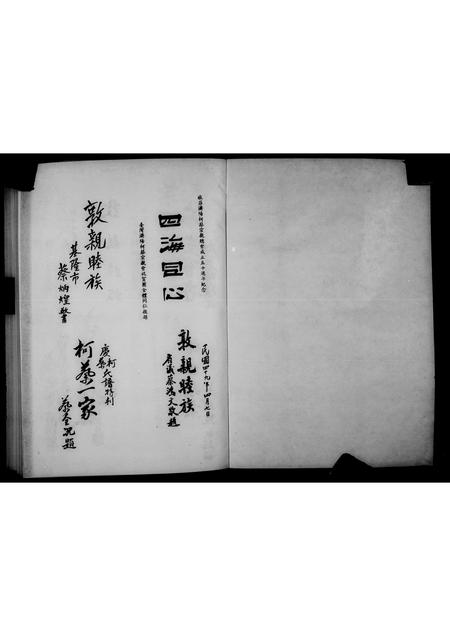 旅菲濟陽柯蔡宗親總會成立五十週年紀念
四海同心
臺灣濟陽柯蔡宗親會祝賀團全體同仁敬題
民國四十九年四月七日
敦親睦族
省議蔡鴻文敬題
敦親睦族
基隆市
蔡炳煌敬書
慶柯蔡氏譜特刊
柯蔡一家
題